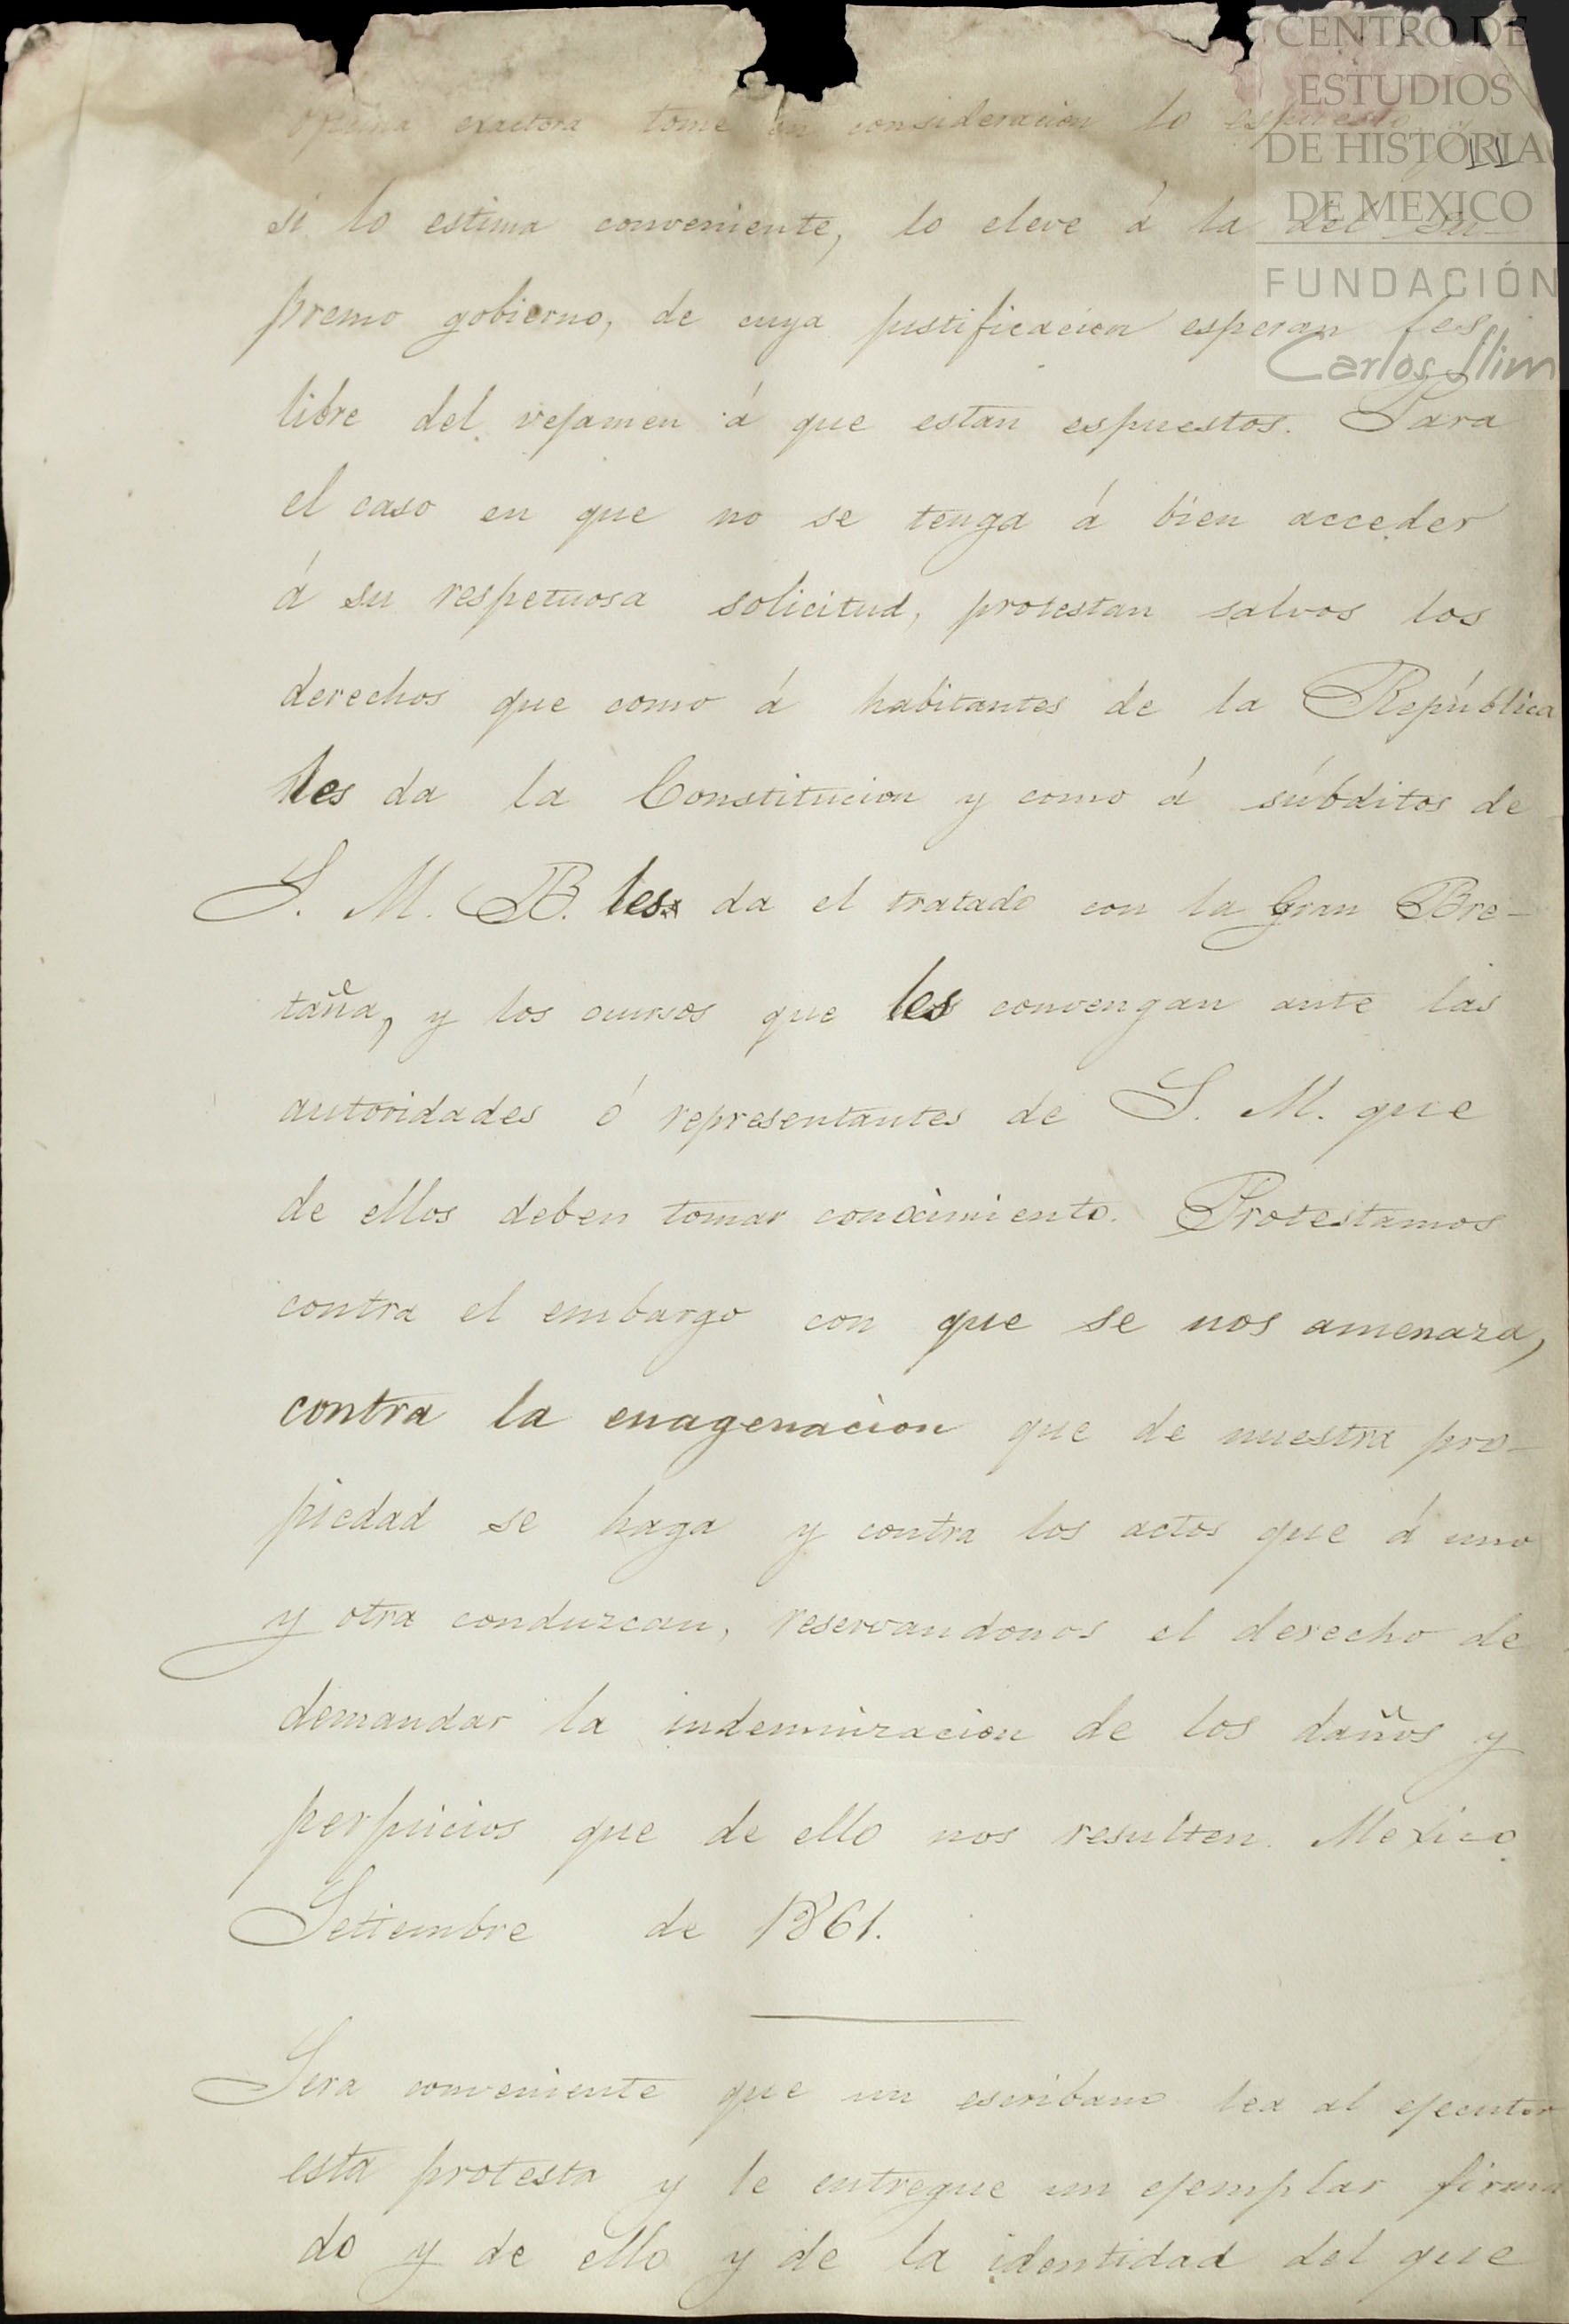 CENTRO DE
ESTUDIOS
DE HISTORIA
DE MEXICO
FUNDACIÓN
Carlos Slim
11
oficina exactora tome en consideracion lo espuesto y
si lo estima conveniente, lo eleve á la del Su-
premo gobierno, de cuya justificacion esperan les
libre del vejamen á que estan espuestos. Para
el caso en que no se tenga á bien acceder
á su respetuosa solicitud, protestan salvos los
derechos que como á habitantes de la República
les da la Constitucion y como á súbditos de
S. M. B. les da el tratado con la Gran Bre-
taña, y los ocursos que les convengan ante las
autoridades ó representantes de S. M. que
de ellos deben tomar conocimiento. Protestamos
contra el embargo con que se nos amenaza,
contra la enagenacion que de nuestra pro-
piedad se haga y contra los actos que á uno
y otra conduzcan, reservandonos el derecho de
demandar la indemnizacion de los daños y
perjuicios que de ello nos resulten. Mexico
Setiembre de 1861.
Sera conveniente que un escribano lea al ejecutor
esta protesta y le entregue un ejemplar firma
do y de ello y de la identidad del que